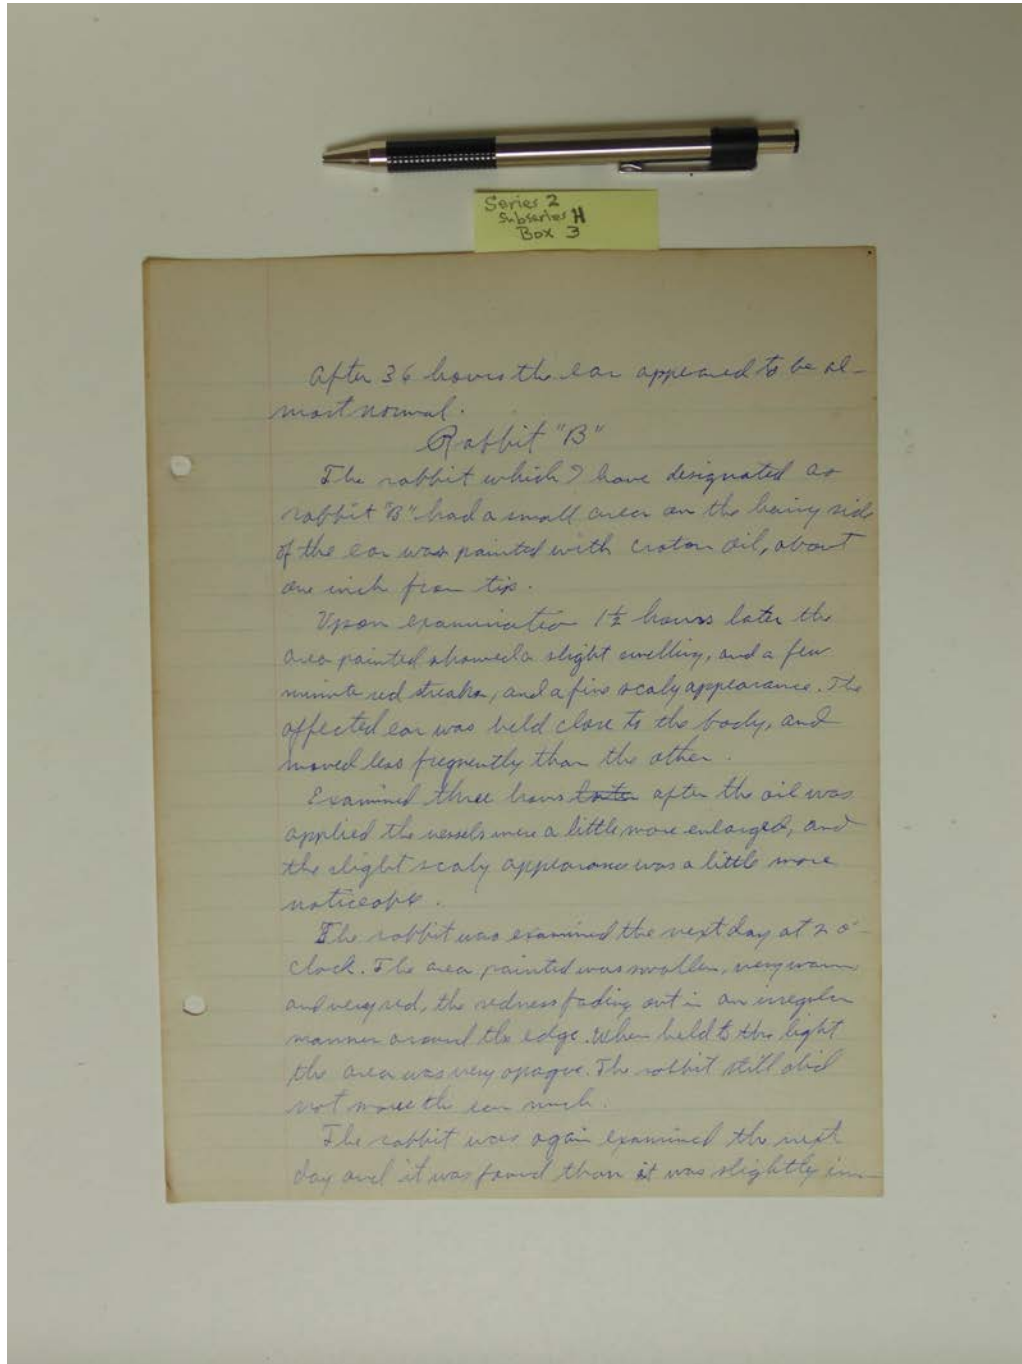 Series 2
Subseries H
Box 3
After 36 hours the ear appeared to be al-
most normal.
Rabbit "B"
The rabbit which I have designated as
rabbit "B" had a small area on the hairy side
of the ear was painted with croton oil, about
one inch from tip.
Upon examination 1½ hours later the
area painted showed a slight swelling, and a few
minute red streaks, and a fine scaly appearance. The
affected ear was held close to the body, and
moved less frequently than the other.
Examined three hours later after the oil was
applied the vessels were a little more enlarged, and
the slight scaly appearance was a little more
noticeable.
The rabbit was examined the next day at 2 o'-
clock. The area painted was swollen, very warm
and very red, the redness fading out in an irregular
manner around the edge. When held to the light
the area was very opaque. The rabbit still did
not move the ear much.
The rabbit was again examined the next
day and it was found than it was slightly im-